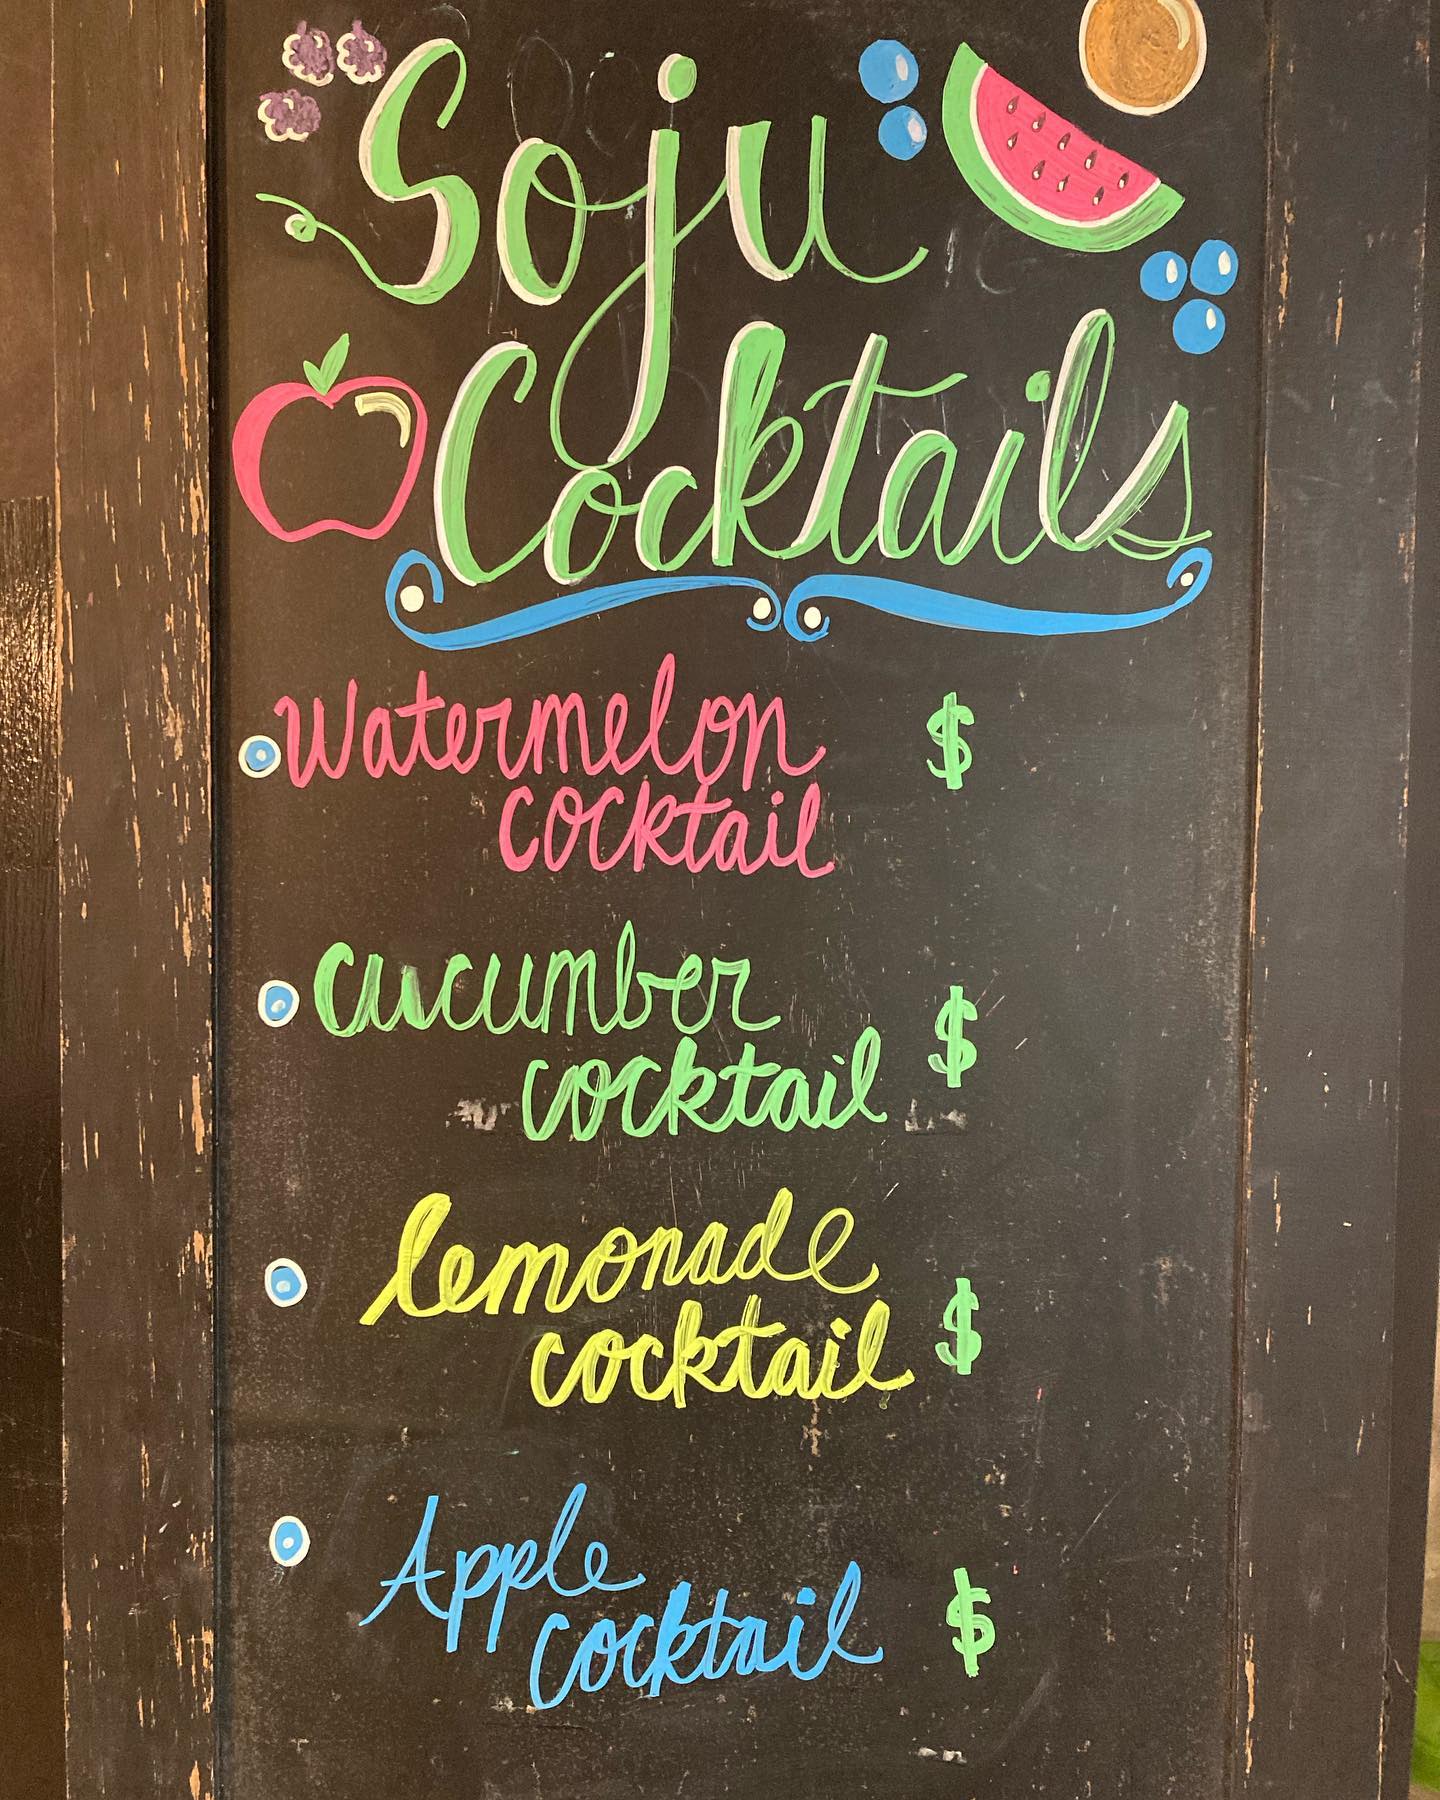 Soju
Cocktails
Watermelon $
cocktail
cucumber
cocktail $
lemonade
cocktail $
Apple
cocktail $